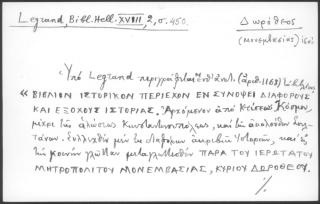 Legrand, Bibl. Hell. XVIII, 2, σ. 450.
Δωρόθεος
(Μονεμβασίας)
Ὑπὸ Legrand περιγράφεται ἐνθ' ἀνωτ. (ἀριθ. 1168)
« ΒΙΒΛΙΟΝ ΙΣΤΟΡΙΚΟΝ ΠΕΡΙΕΧΟΝ ΕΝ ΣΥΝΟΨΕΙ ΔΙΑΦΟΡΟΥΣ
ΚΑΙ ΕΞΟΧΟΥΣ ΙΣΤΟΡΙΑΣ. Ἀρχόμενον ἀπὸ Κτίσεως Κόσμου,
μέχρι τῆς ἁλώσεως Κωνσταντινουπόλεως, καὶ
Συλλεχθὲν μὲν ἐκ διαφόρων ἀκριβῶν ἱστοριῶν, καὶ εἰς
τὴν κοινὴν γλῶτταν μεταγλωττισθὲν ΠΑΡΑ ΤΟΥ ΙΕΡΩΤΑΤΟΥ
ΜΗΤΡΟΠΟΛΙΤΟΥ ΜΟΝΕΜΒΑΣΙΑΣ, ΚΥΡΙΟΥ ΔΩΡΟΘΕΟΥ.